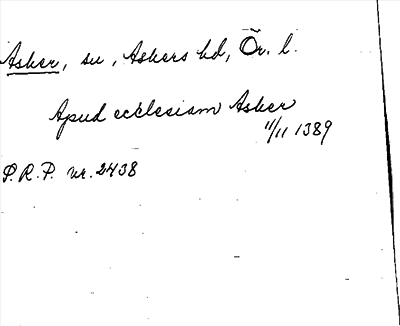 Asker, sn, Askers hd, Ör. l.
Apud ecclesiam Asker
11/11 1389
S.R.P. nr. 2438